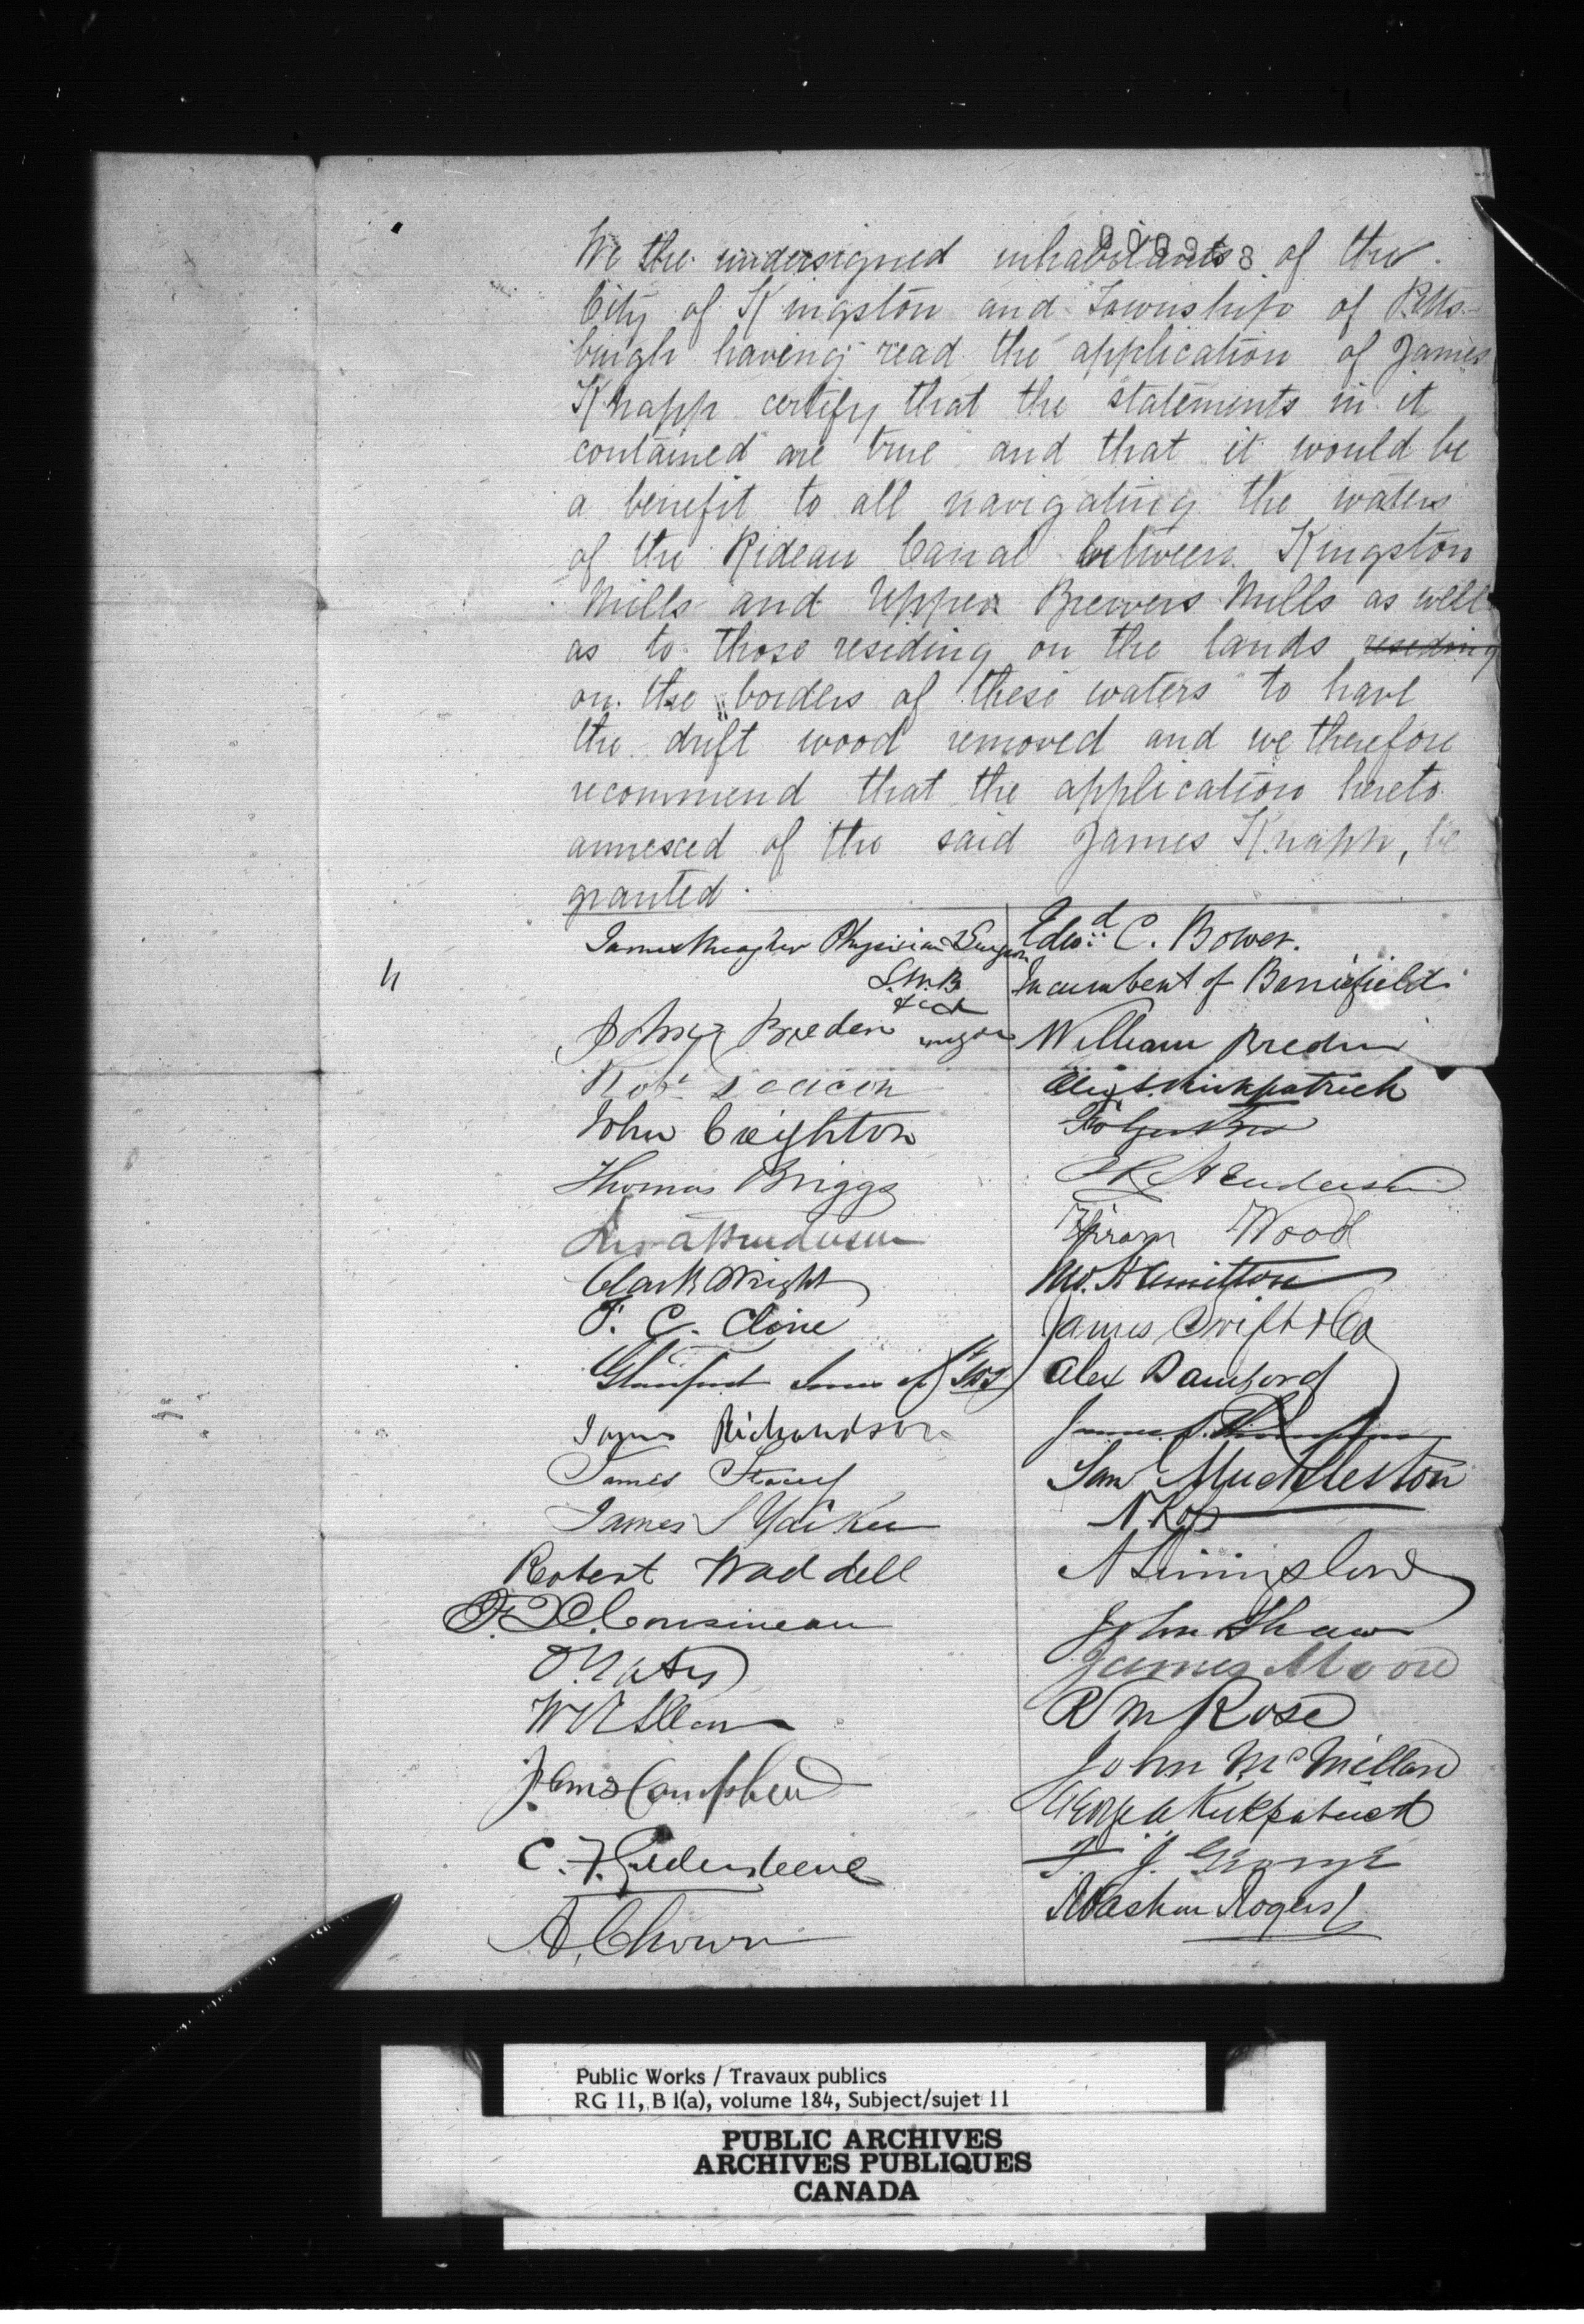 We the undersigned inhabitants of the
City of Kingston and Township of Pitts-
burgh having read the application of James
Knapp certify that the statements in it
contained are true and that it would be
a benefit to all navigating the waters
of the Rideau Canal between Kingston
Mills and Upper Brewers Mills as well
as to those residing on the lands residing
on the borders of these waters to have
the drift wood removed and we therefore
recommend that the application hereto
annexed of the said James Knapp, be
granted.
James Meagher Physician & Surgeon
Edwd. C. Bower.
Incumbent of Barriefield
John Breden
William Bredin
Robt Deacon
Kirkpatrick
John Creighton
Thomas Briggs
Henderson
Hiram Wood
Clark Wright
Hamilton
T. C. Cline
James Swift & Co
Alex Bamford
James Richardson
James Stacey
Muckleston
James
Robert Waddell
John Shaw
Cousineau
James Moore
O. Yates
R M Rose
John McMillan
James Campbell
George A Kirkpatrick
C. F. Gildersleeve
T. J. George
A. Chown
Rogers
Public Works / Travaux publics
RG 11, B 1(a), volume 184, Subject/sujet 11
PUBLIC ARCHIVES
ARCHIVES PUBLIQUES
CANADA